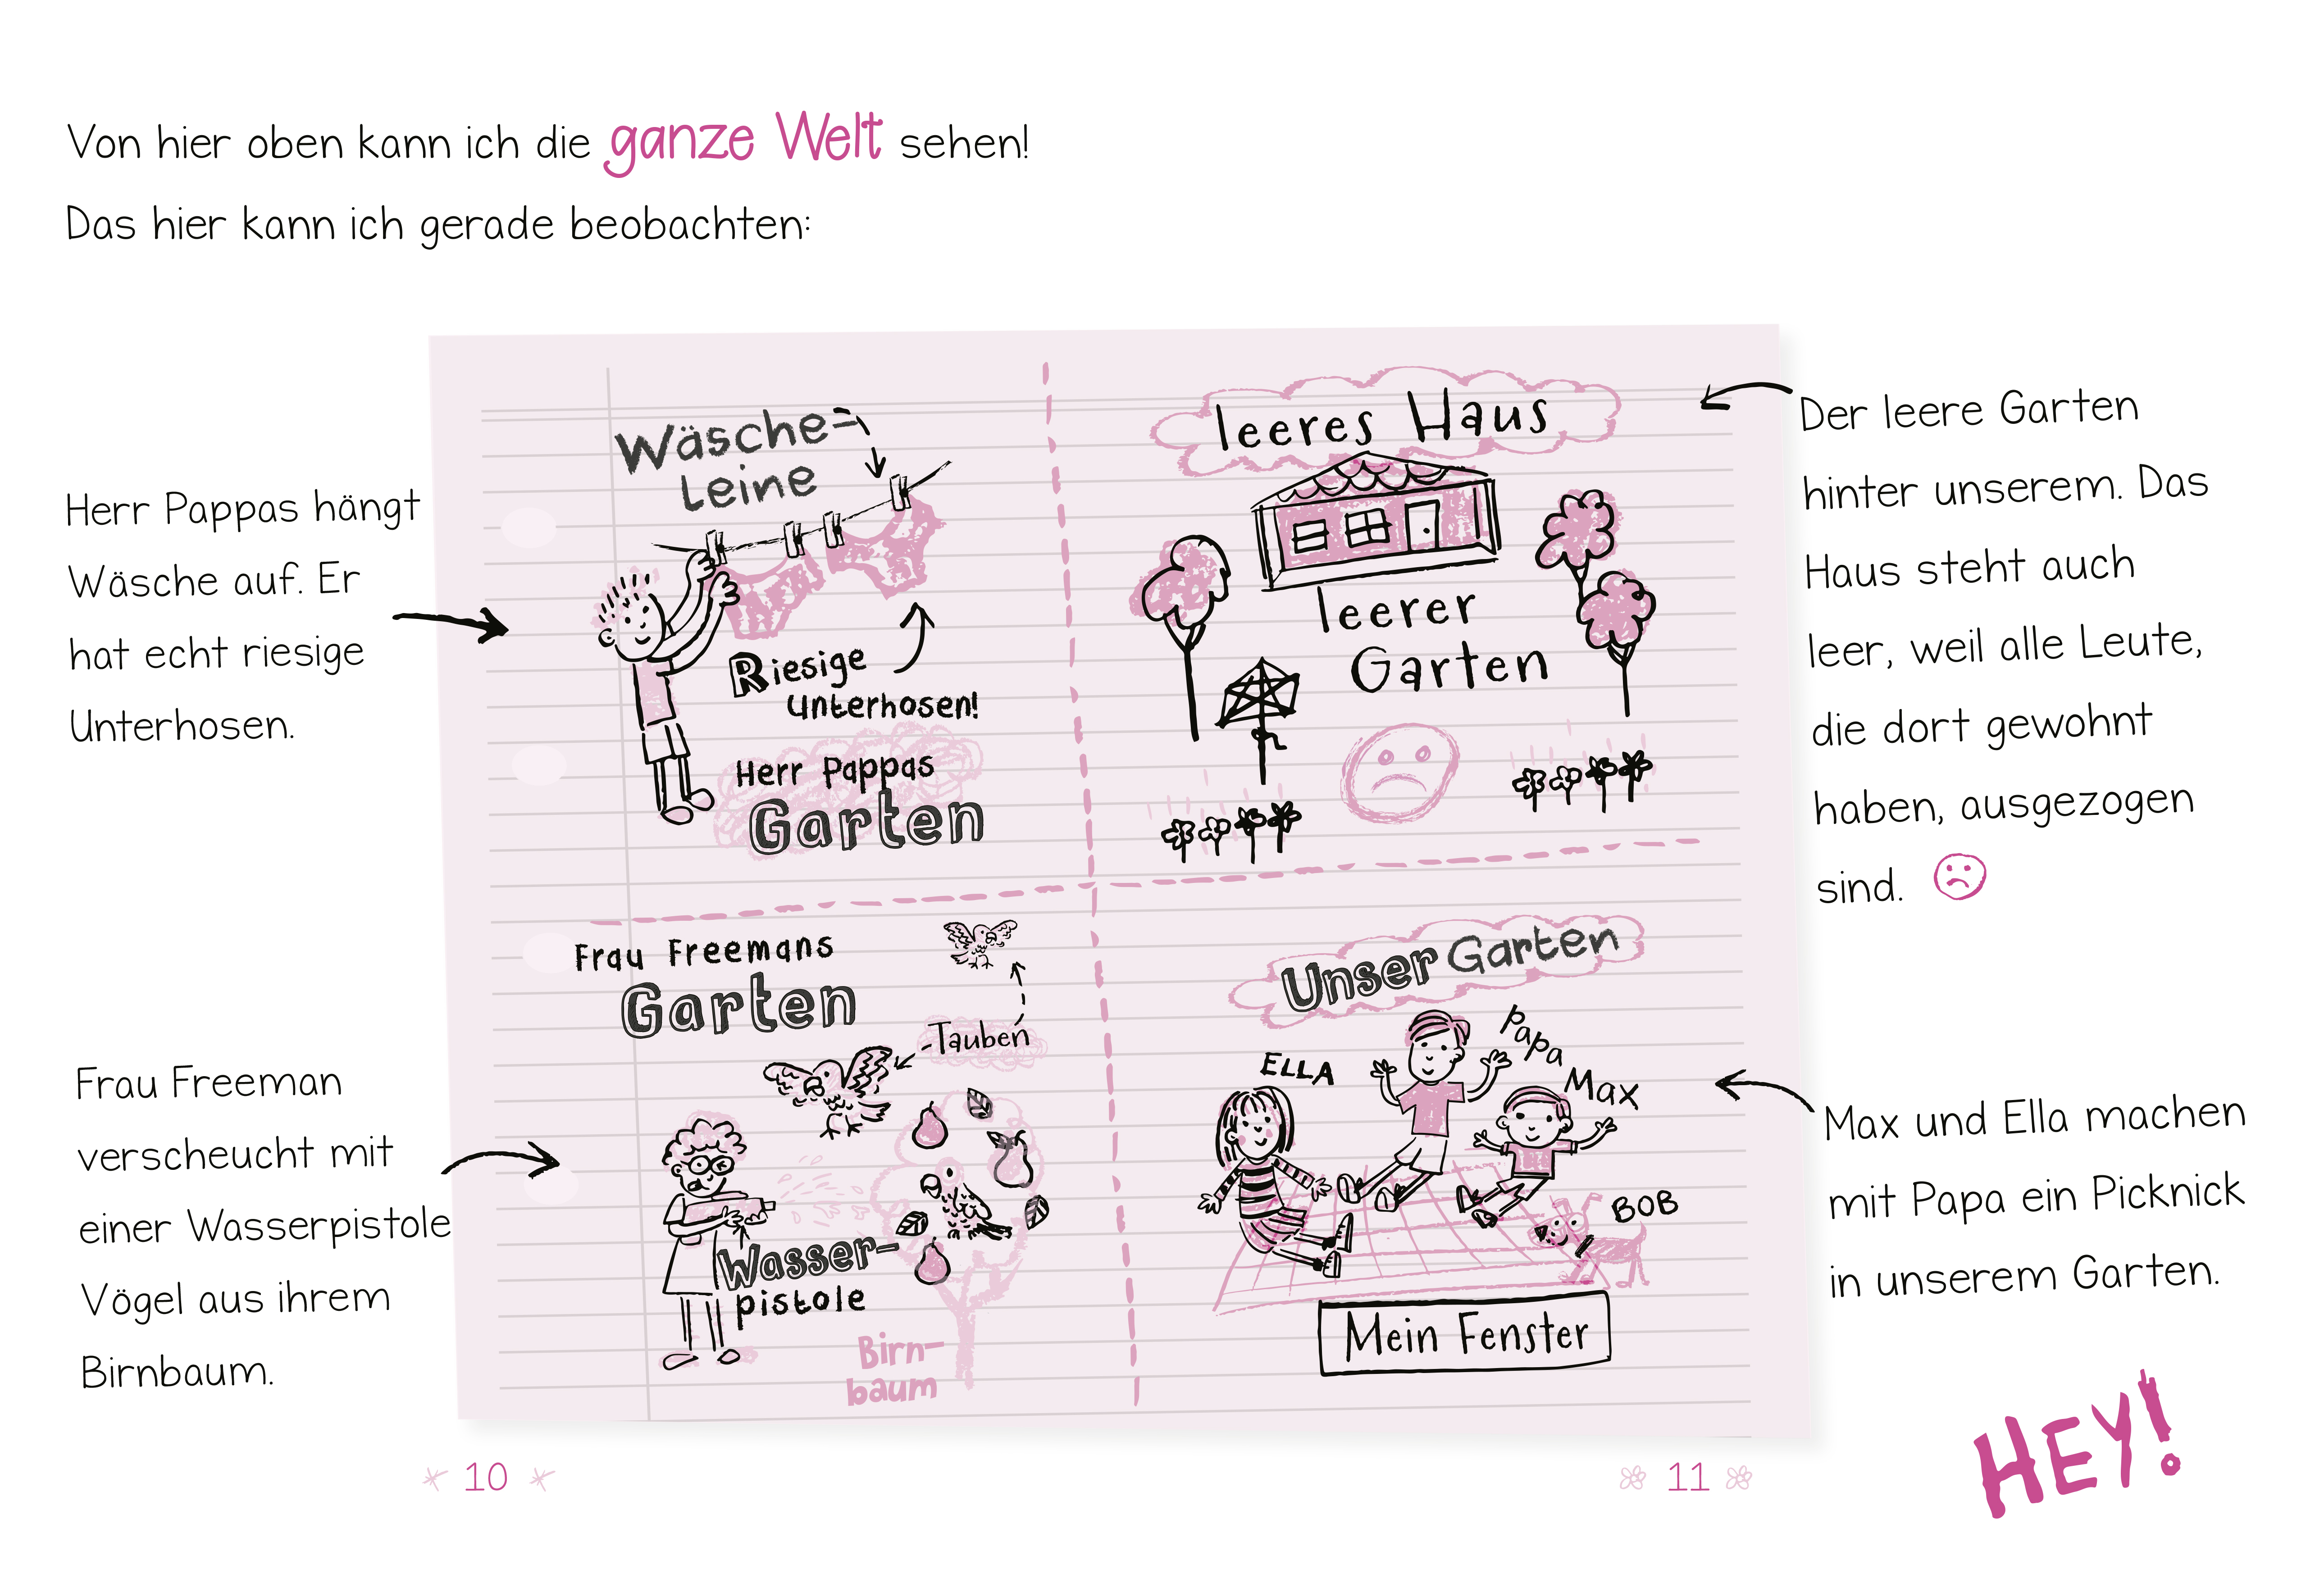 Von hier oben kann ich die ganze Welt sehen!
Das hier kann ich gerade beobachten:
Herr Pappas hängt
Wäsche auf. Er
hat echt riesige
Unterhosen.
Frau Freeman
verscheucht mit
einer Wasserpistole
Vögel aus ihrem
Birnbaum.
Wäsche=
Leine
Riesige
Unterhosen!
Herr Pappas
Garten
leeres Haus
leerer
Garten
Frau Freemans
Garten
Tauben
Wasser-
pistole
Birn-
baum
Unser Garten
ELLA
Papa
Max
BOB
Mein Fenster
Der leere Garten
hinter unserem. Das
Haus steht auch
leer, weil alle Leute,
die dort gewohnt
haben, ausgezogen
sind.
Max und Ella machen
mit Papa ein Picknick
in unserem Garten.
HEY!
10
11